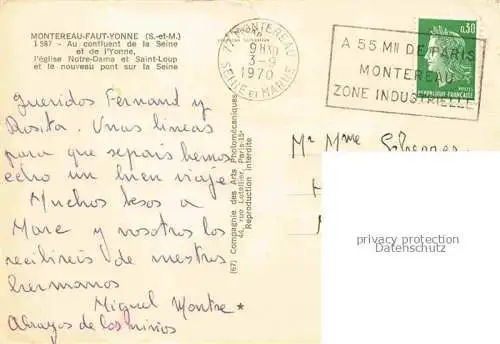 MONTEREAU-FAUT-YONNE (S.-et-M.)
1 587 - Au confluent de la Seine
et de l'Yonne,
l'église Notre-Dama et Saint-Loup
et le nouveau pont sur la Seine
77 MONTEREAU
9H30
3-9
1970
SEINE ET MARNE
A 55 Mn DE PARIS
MONTEREAU
ZONE INDUSTRIELLE
0,30
POSTES
REPUBLIQUE FRANÇAISE
Queridos Fernand y
Rosita. Unas lineas
para que sepais hemos
echo un bien viaje
Muchos besos a
Marc y nosotros los
recibireis de mestros
hermanos
Miguel Montse *
Abrazos de los niños
(67) Compagnie des Arts Photomécaniques
44, rue Letellier, Paris-15e
Reproduction interdite
Mr Mme
privacy protection
Datenschutz